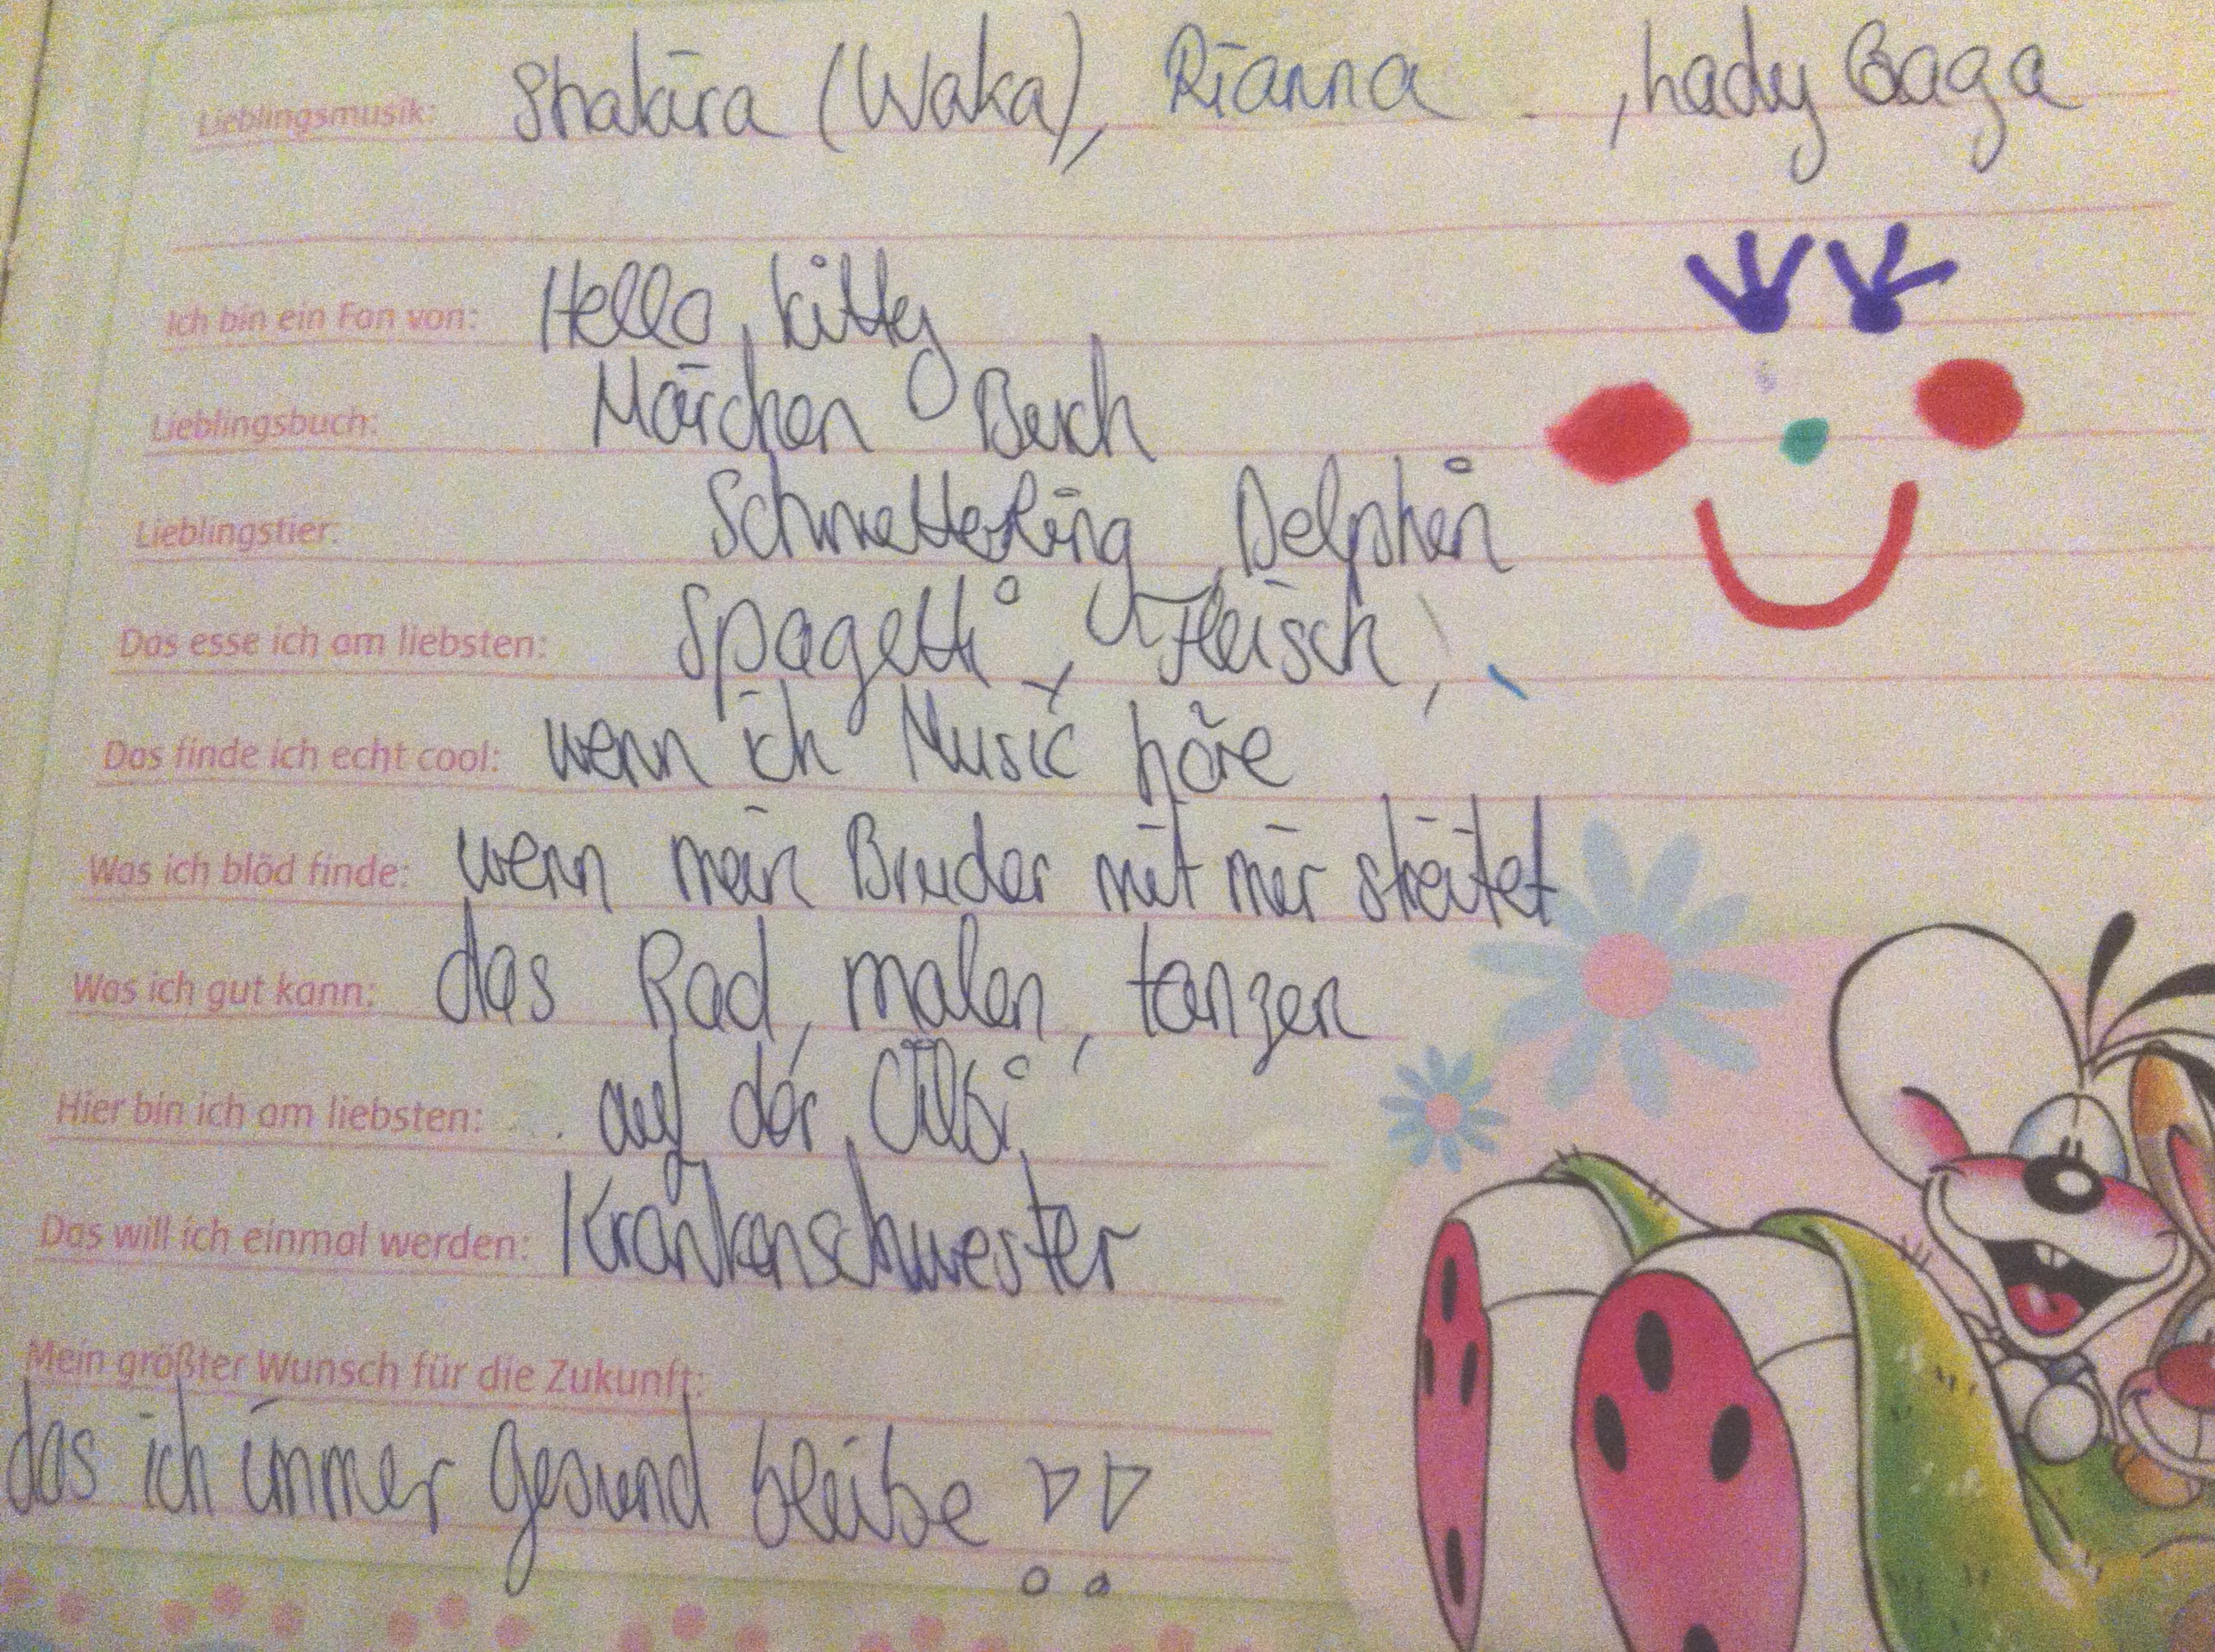 Lieblingsmusik: Shakira (Waka), Rianna , Lady Gaga
Ich bin ein Fan von: Hello Kitty
Lieblingsbuch: Märchen Buch
Lieblingstier: Schmetterling, Delphin
Das esse ich am liebsten: Spagetti, Fleisch,
Das finde ich echt cool: wenn ich Music höre
Was ich blöd finde: wenn mein Bruder mit mir streitet
Was ich gut kann: das Rad, malen, tanzen
Hier bin ich am liebsten: auf der Chilbi
Das will ich einmal werden: Krankenschwester
Mein größter Wunsch für die Zukunft:
das ich immer gesund bleibe !!